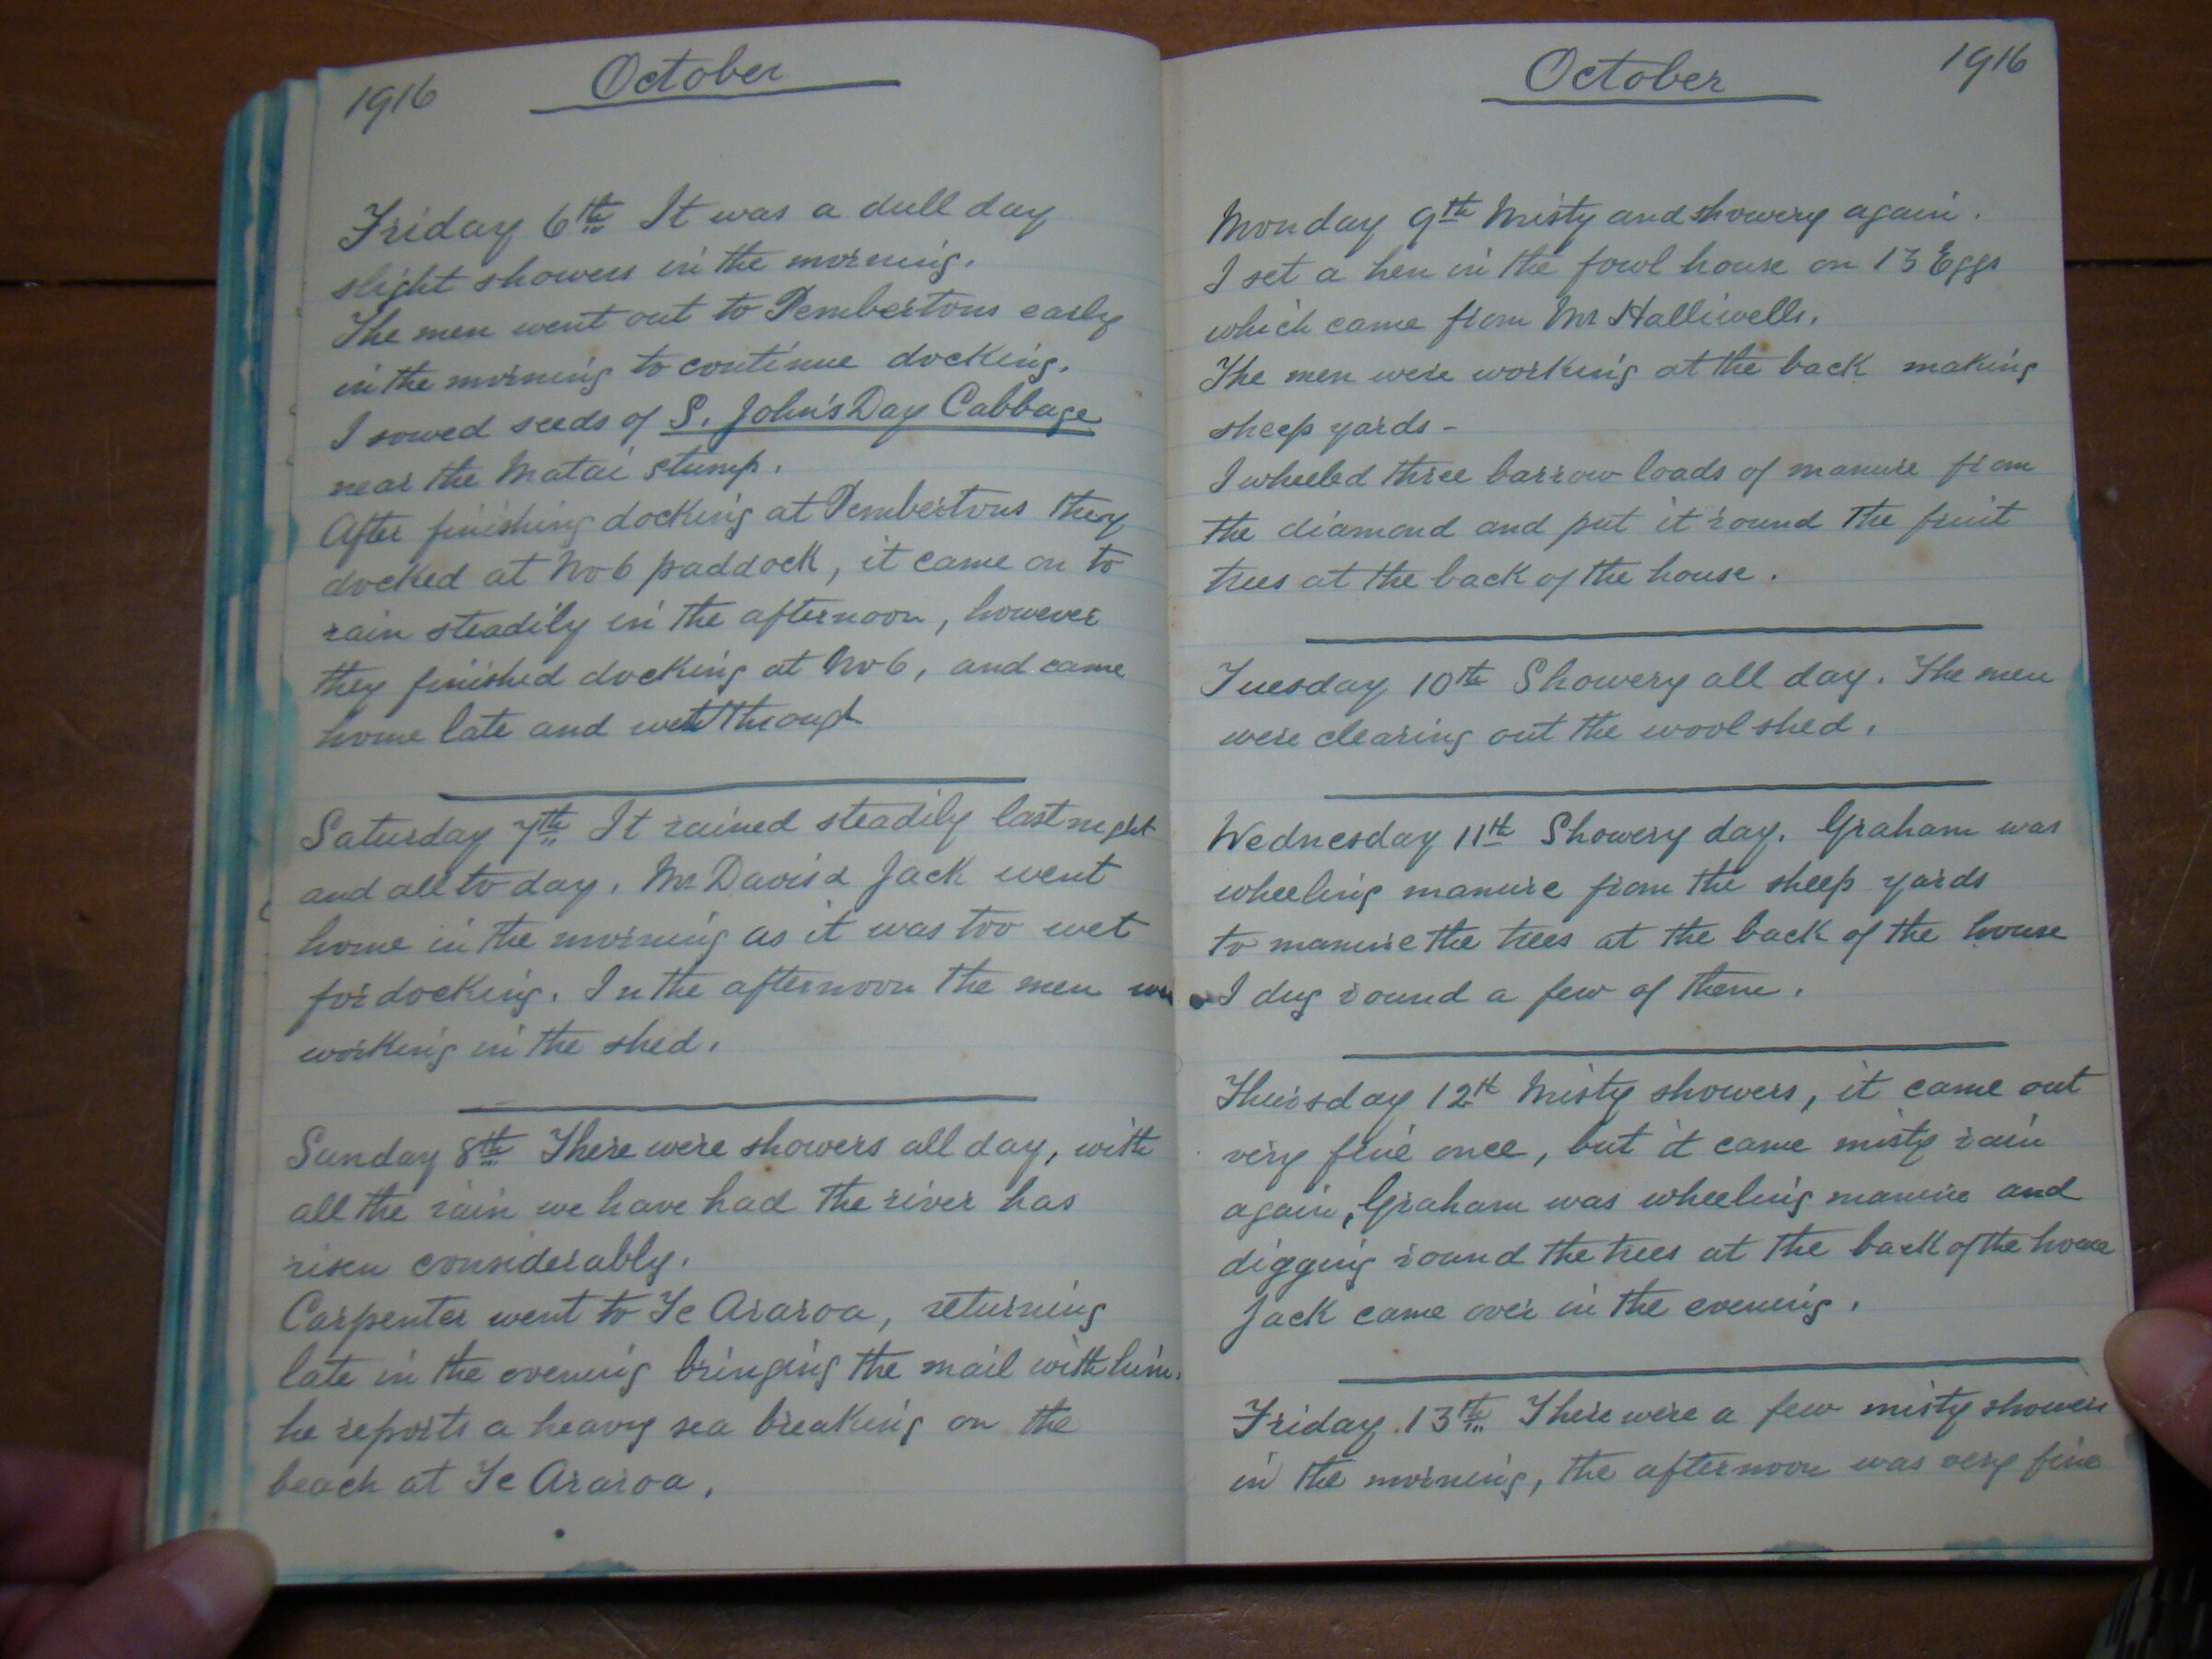 1916 October
Friday 6th It was a dull day
slight showers in the morning.
The men went out to Pembertons early
in the morning to continue docking.
I sowed seeds of S. John's Day Cabbage
near the Matai stump.
After finishing docking at Pembertons they
docked at No 6 paddock, it came on to
rain steadily in the afternoon, however
they finished docking at No 6, and came
home late and wet through
Saturday 7th It rained steadily last night
and all to day. Mr Davis & Jack went
home in the morning as it was too wet
for docking. In the afternoon the men
working in the shed.
Sunday 8th There were showers all day, with
all the rain we have had the river has
risen considerably.
Carpenter went to Te Araroa, returning
late in the evening bringing the mail with him.
he reports a heavy sea breaking on the
beach at Te Araroa.
October 1916
Monday 9th Misty and showery again.
I set a hen in the fowl house on 13 Eggs
which came from Mr Halliwells.
The men were working at the back making
sheep yards -
I wheeled three barrow loads of manure from
the diamond and put it round the fruit
trees at the back of the house.
Tuesday 10th Showery all day. The men
were clearing out the wool shed.
Wednesday 11th Showery day. Graham was
wheeling manure from the sheep yards
to manure the trees at the back of the house
I dug round a few of them.
Thursday 12th Misty showers, it came out
very fine once, but it came misty rain
again, Graham was wheeling manure and
digging round the trees at the back of the house
Jack came over in the evening.
Friday 13th There were a few misty showers
in the morning, the afternoon was very fine